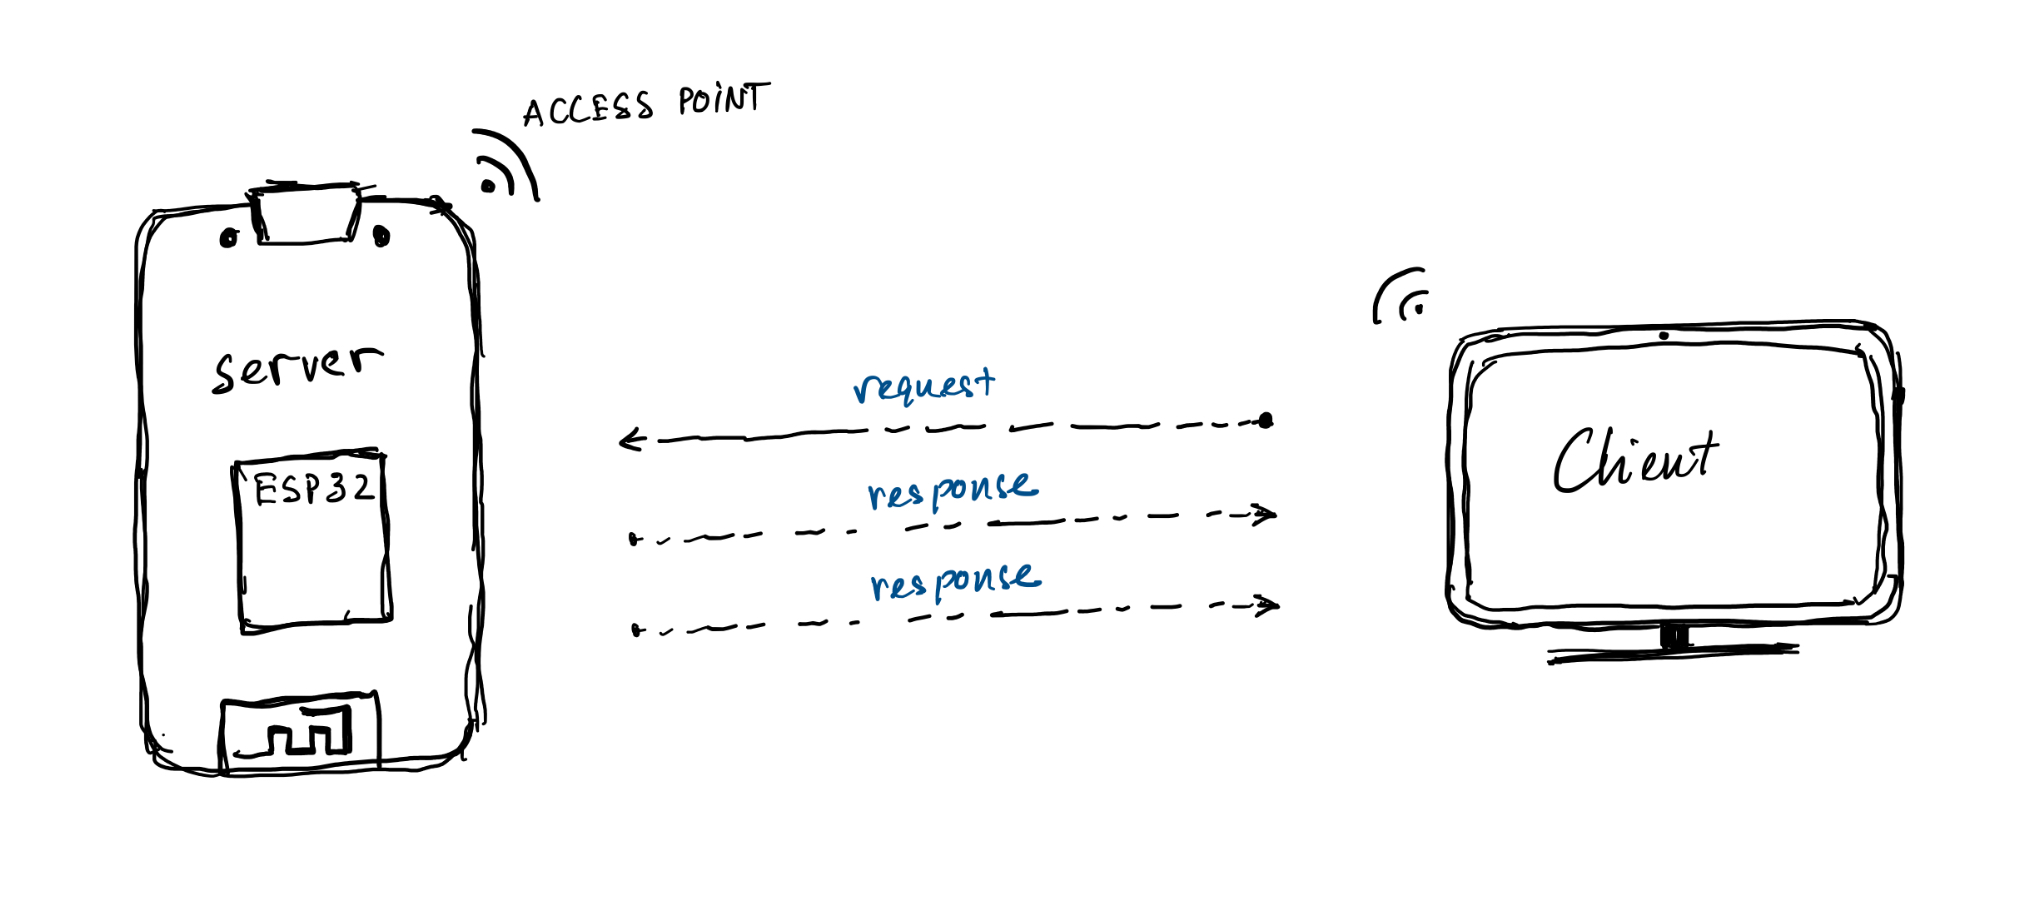 ACCESS POINT
server
ESP32
request
response
response
Client